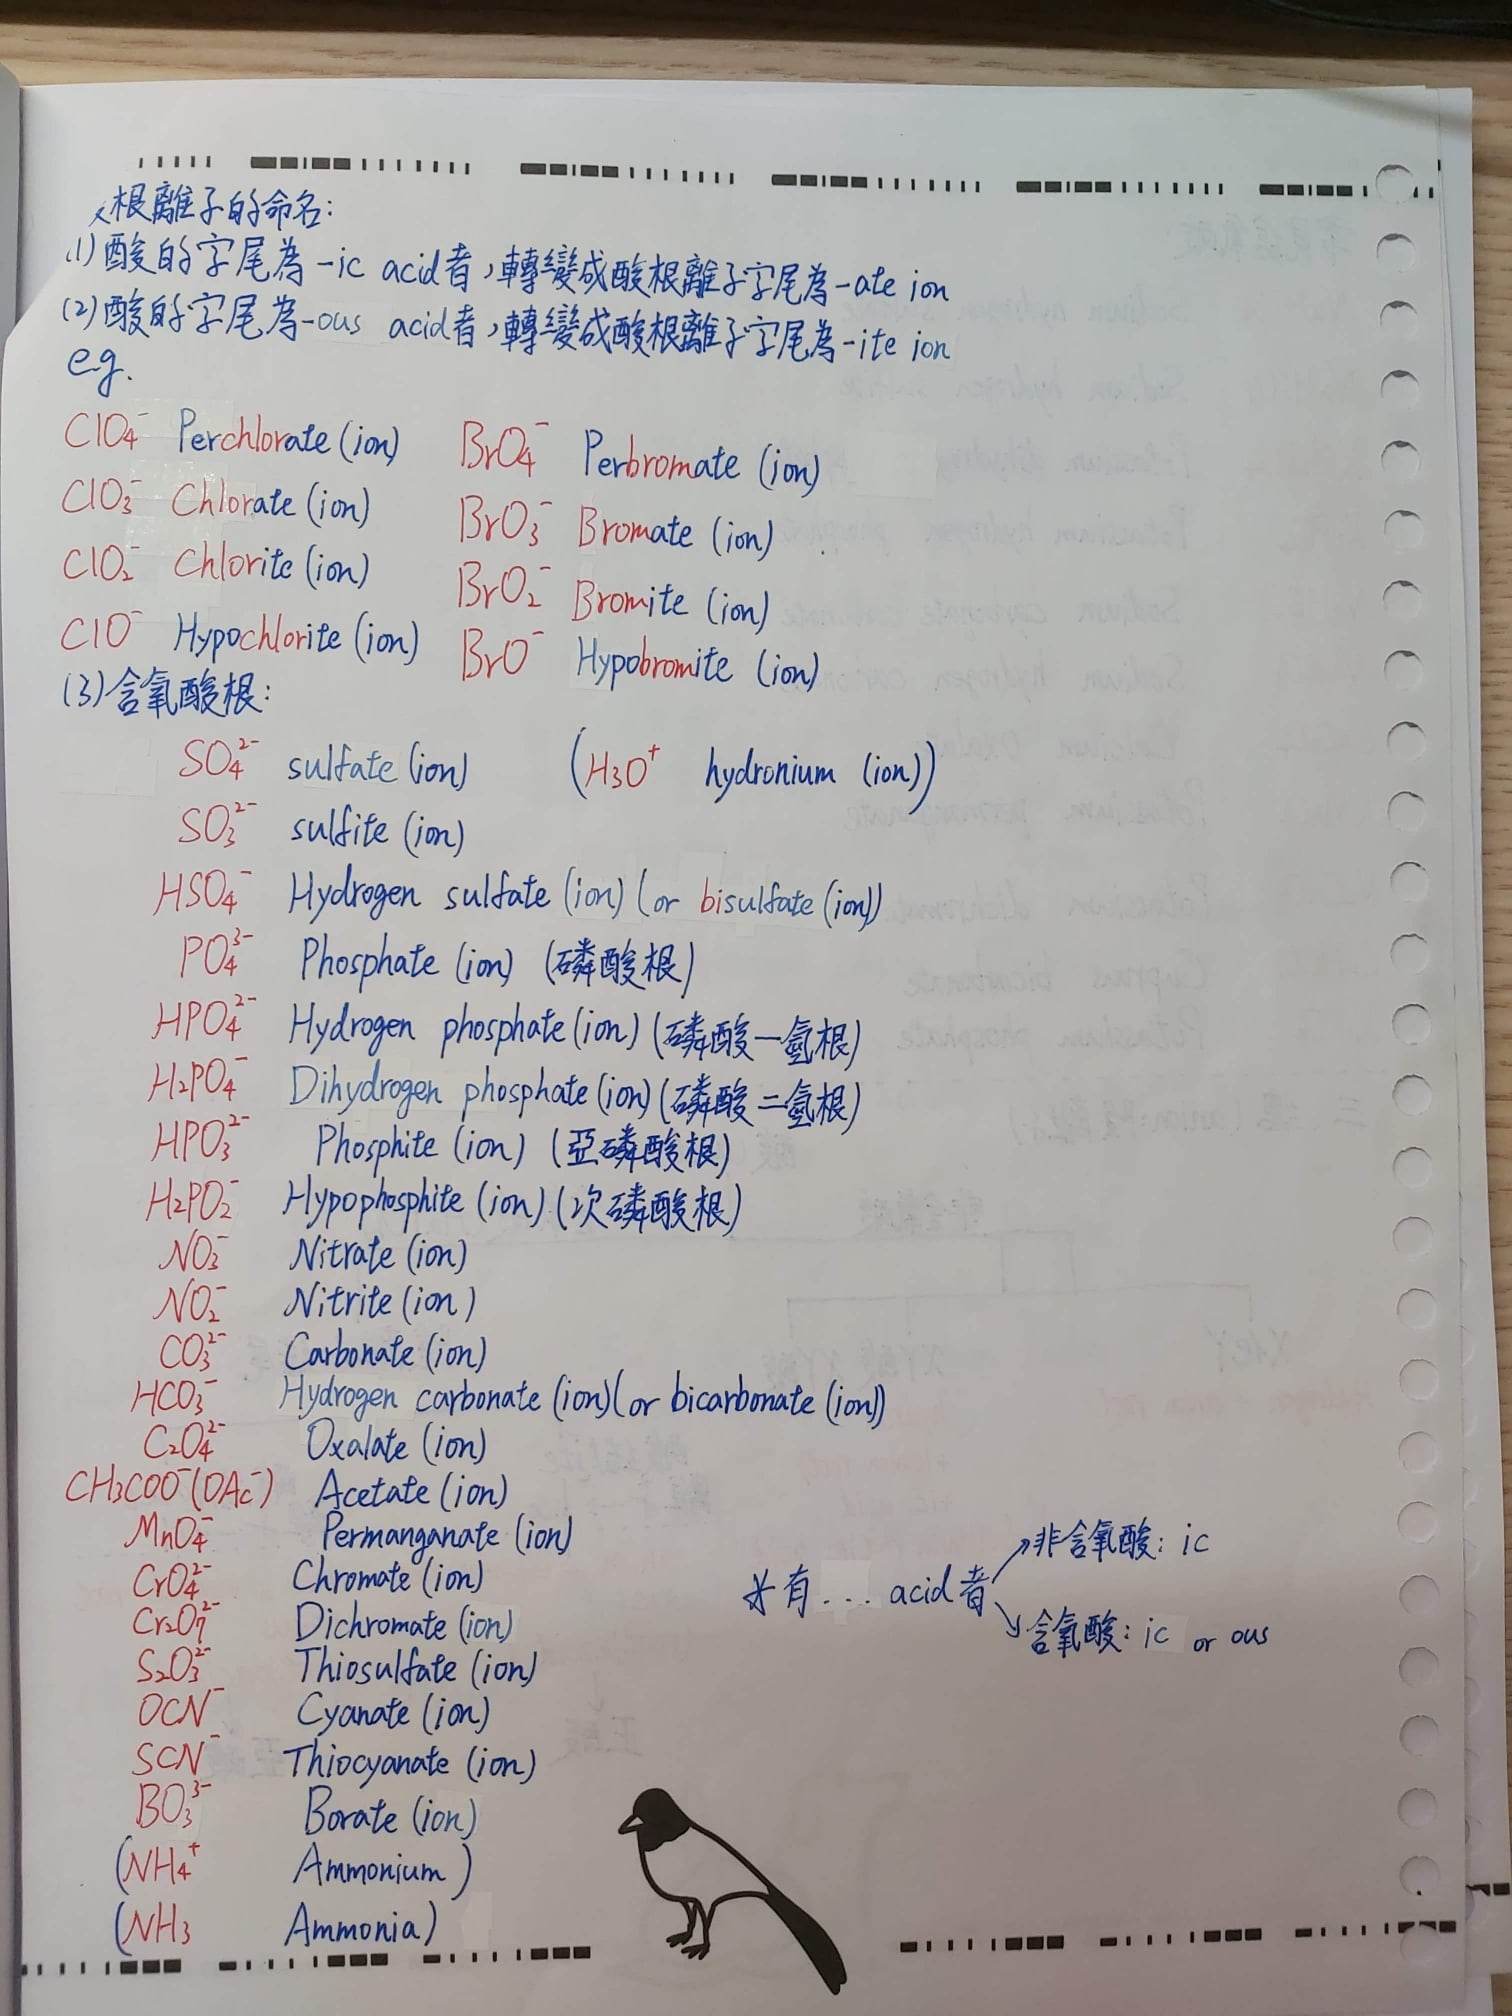 根離子的命名:
(1)酸的字尾為-ic acid者,轉變成酸根離子字尾為-ate ion
(2)酸的字尾為-ous acid者,轉變成酸根離子字尾為-ite ion
e.g.
ClO₄⁻ Perchlorate (ion) BrO₄⁻ Perbromate (ion)
ClO₃⁻ Chlorate (ion) BrO₃⁻ Bromate (ion)
ClO₂⁻ Chlorite (ion) BrO₂⁻ Bromite (ion)
ClO⁻ Hypochlorite (ion) BrO⁻ Hypobromite (ion)
(3)含氧酸根:
SO₄²⁻ sulfate (ion) (H₃O⁺ hydronium (ion))
SO₃²⁻ sulfite (ion)
HSO₄⁻ Hydrogen sulfate (ion) (or bisulfate (ion))
PO₄³⁻ Phosphate (ion) (磷酸根)
HPO₄²⁻ Hydrogen phosphate (ion) (磷酸一氫根)
H₂PO₄⁻ Dihydrogen phosphate (ion) (磷酸二氫根)
HPO₃²⁻ Phosphite (ion) (亞磷酸根)
H₂PO₂⁻ Hypophosphite (ion) (次磷酸根)
NO₃⁻ Nitrate (ion)
NO₂⁻ Nitrite (ion)
CO₃²⁻ Carbonate (ion)
HCO₃⁻ Hydrogen carbonate (ion) (or bicarbonate (ion))
C₂O₄²⁻ Oxalate (ion)
CH₃COO⁻(OAc⁻) Acetate (ion)
MnO₄⁻ Permanganate (ion)
CrO₄²⁻ Chromate (ion)
Cr₂O₇²⁻ Dichromate (ion)
S₂O₃²⁻ Thiosulfate (ion)
OCN⁻ Cyanate (ion)
SCN⁻ Thiocyanate (ion)
BO₃³⁻ Borate (ion)
(NH₄⁺ Ammonium)
(NH₃ Ammonia)
※有... acid者
↗非含氧酸: ic
↘含氧酸: ic or ous